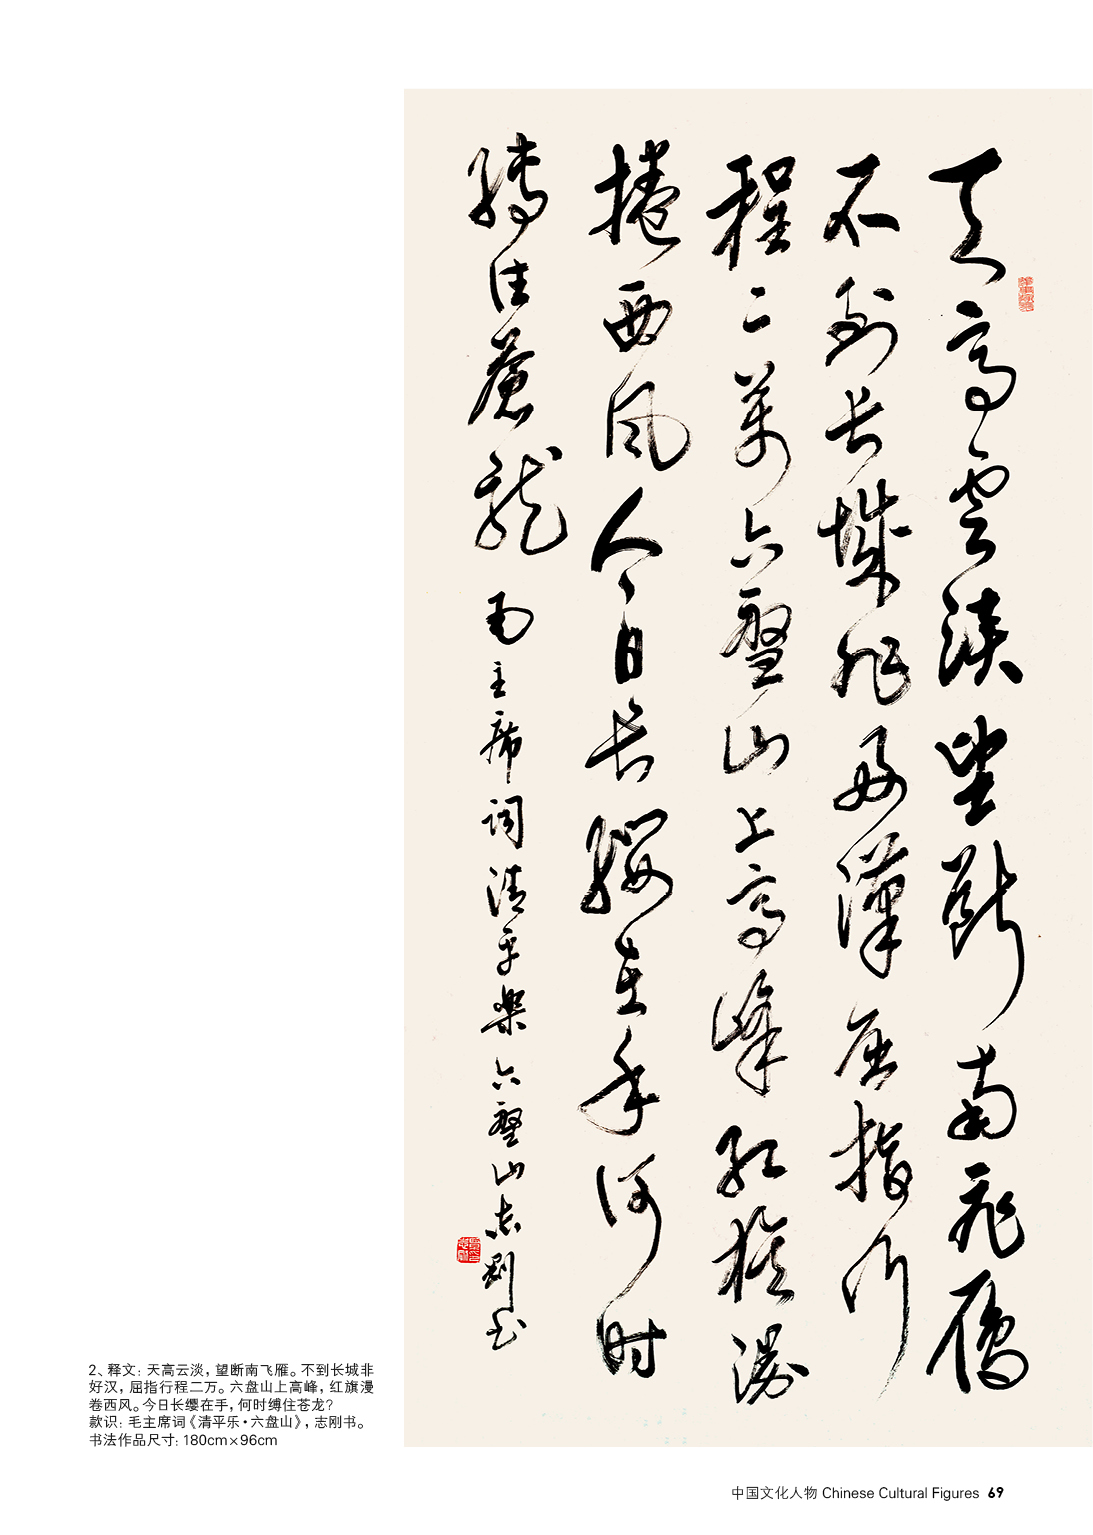 天高雲淡望斷南飛鴈
不到長城非好漢屈指行
程二萬六盤山上高峰紅旗漫
捲西風今日長纓在手何时
縛住蒼龍 毛主席詞清平樂六盤山志剛书
2、释文：天高云淡，望断南飞雁。不到长城非
好汉，屈指行程二万。六盘山上高峰，红旗漫
卷西风。今日长缨在手，何时缚住苍龙？
款识：毛主席词《清平乐·六盘山》，志刚书。
书法作品尺寸：180cm×96cm
中国文化人物 Chinese Cultural Figures 69